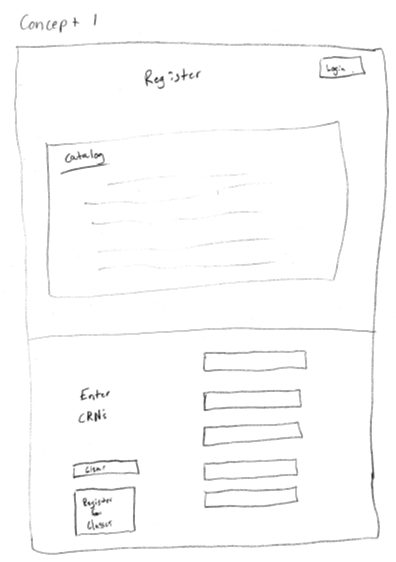 Concept 1
Register
Login
Catalog
Enter
CRNs
Clear
Register
Classes